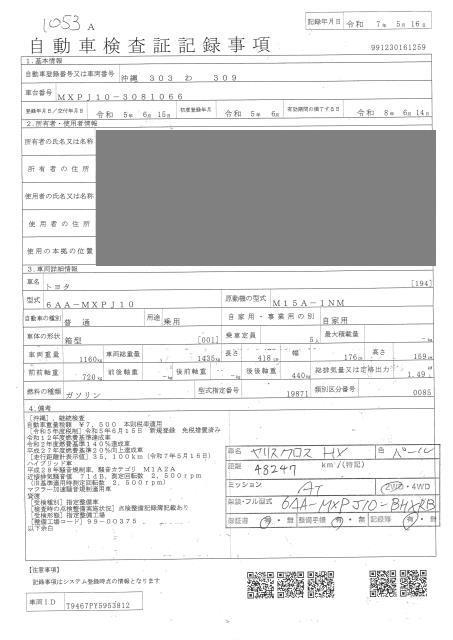 1053 A
記録年月日 令和 7年 5月 16日
自動車検査証記録事項
991230161259
1.基本情報
自動車登録番号又は車両番号 沖縄 303 わ 309
車台番号 MXPJ10-3081066
登録年月日/交付年月日 令和 5年 6月 15日 初度登録年月 令和 5年 6月 有効期間の満了する日 令和 8年 6月 14日
2.所有者・使用者情報
所有者の氏名又は名称
所有者の住所
使用者の氏名又は名称
使用者の住所
使用の本拠の位置
3.車両詳細情報
車名 トヨタ [194]
型式 6AA-MXPJ10 原動機の型式 M15A-1NM
自動車の種別 普通 用途 乗用 自家用・事業用の別 自家用
車体の形状 箱型 [001] 乗車定員 5人 最大積載量 -kg
車両重量 1160kg 車両総重量 1435kg 長さ 418cm 幅 176cm 高さ 159cm
前前軸重 720kg 前後軸重 -kg 後前軸重 -kg 後後軸重 440kg 総排気量又は定格出力 1.49L
燃料の種類 ガソリン 型式指定番号 19871 類別区分番号 0085
4.備考
[沖縄],継続検査
自動車重量税額 ¥7,500 本則税率適用
[令和5年度税制]令和5年6月15日 新規登録 免税措置済み
令和12年度燃費基準達成車
令和2年度燃費基準140%達成車
平成27年度燃費基準20%向上達成車
[走行距離計表示値]35,100km(令和7年5月16日)
ハイブリッド車
平成28年騒音規制車,騒音カテゴリ M1A2A
近接排気騒音値 71dB,測定回転数 2,500rpm
(旧基準適用時測定回転数 2,500rpm)
マフラー加速騒音規制適用車
貸渡
[受検種別]指定整備車
[検査時の点検整備実施状況]点検整備記録簿記載あり
[受検形態]指定整備工場
[整備工場コード]99-00375
以下余白
車名 ヤリスクロス HX 色 パール
距離 48247 km/(特記)
ミッション AT 2WD・4WD
認証・フル型式 6AA-MXPJ10-BHXRB
保証書 有・無 整備手帳 有・無 記録簿 有・無
[注意事項]
記録事項はシステム登録時点の情報となります
車両ID T9467PY5953812